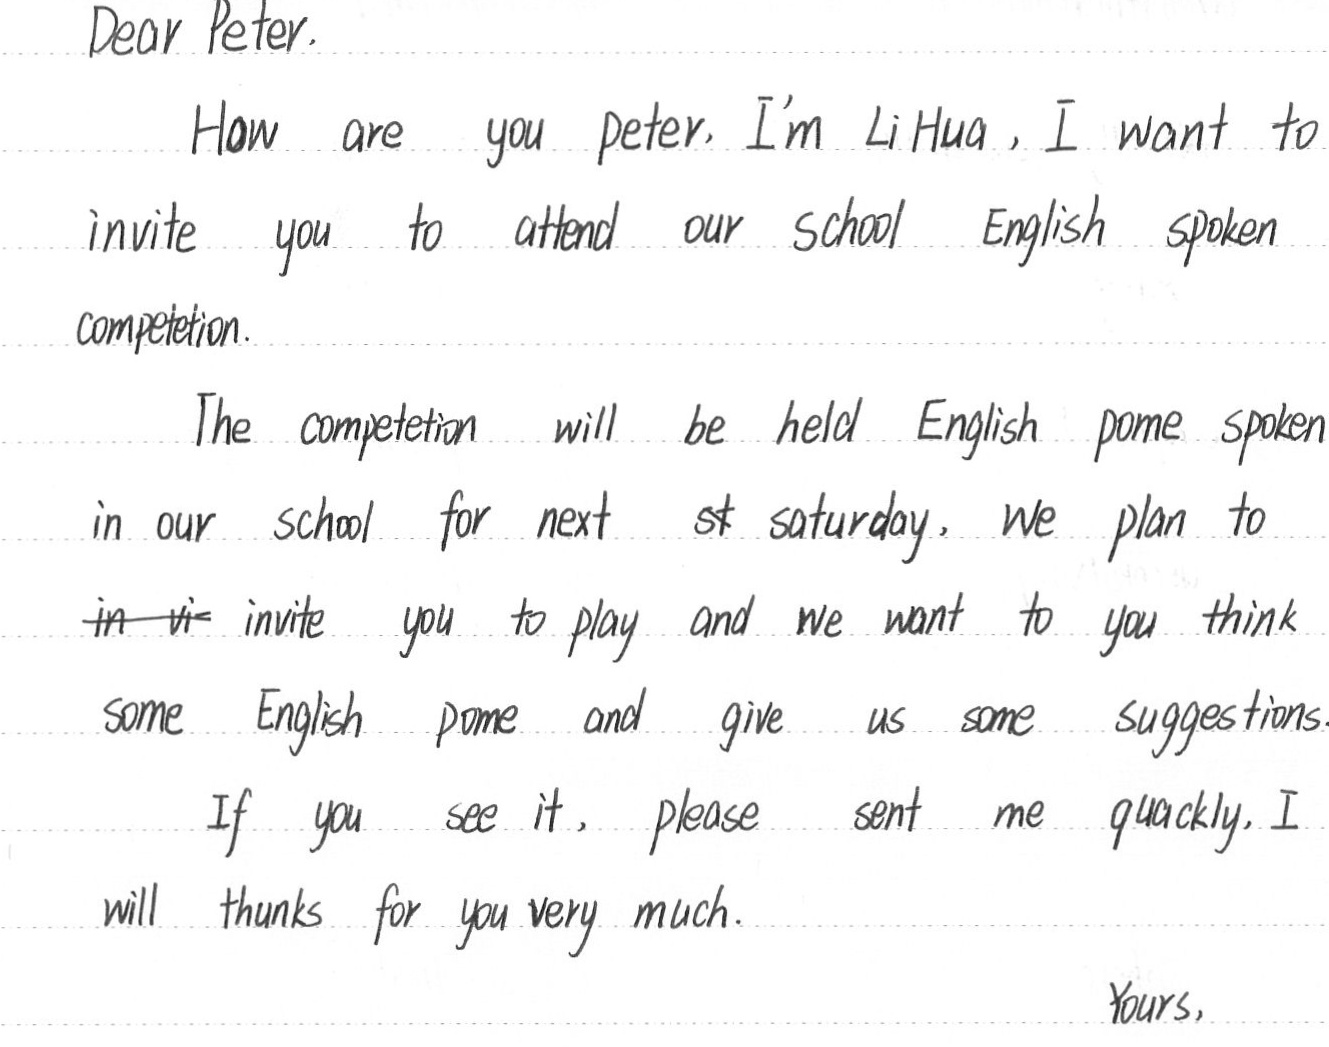 Dear Peter.
How are you peter. I'm Li Hua, I want to
invite you to attend our school English spoken
competetion.
The competetion will be held English pome spoken
in our school for next st saturday. We plan to
in vi invite you to play and we want to you think
some English pome and give us some suggestions.
If you see it, please sent me quackly. I
will thunks for you very much.
Yours,